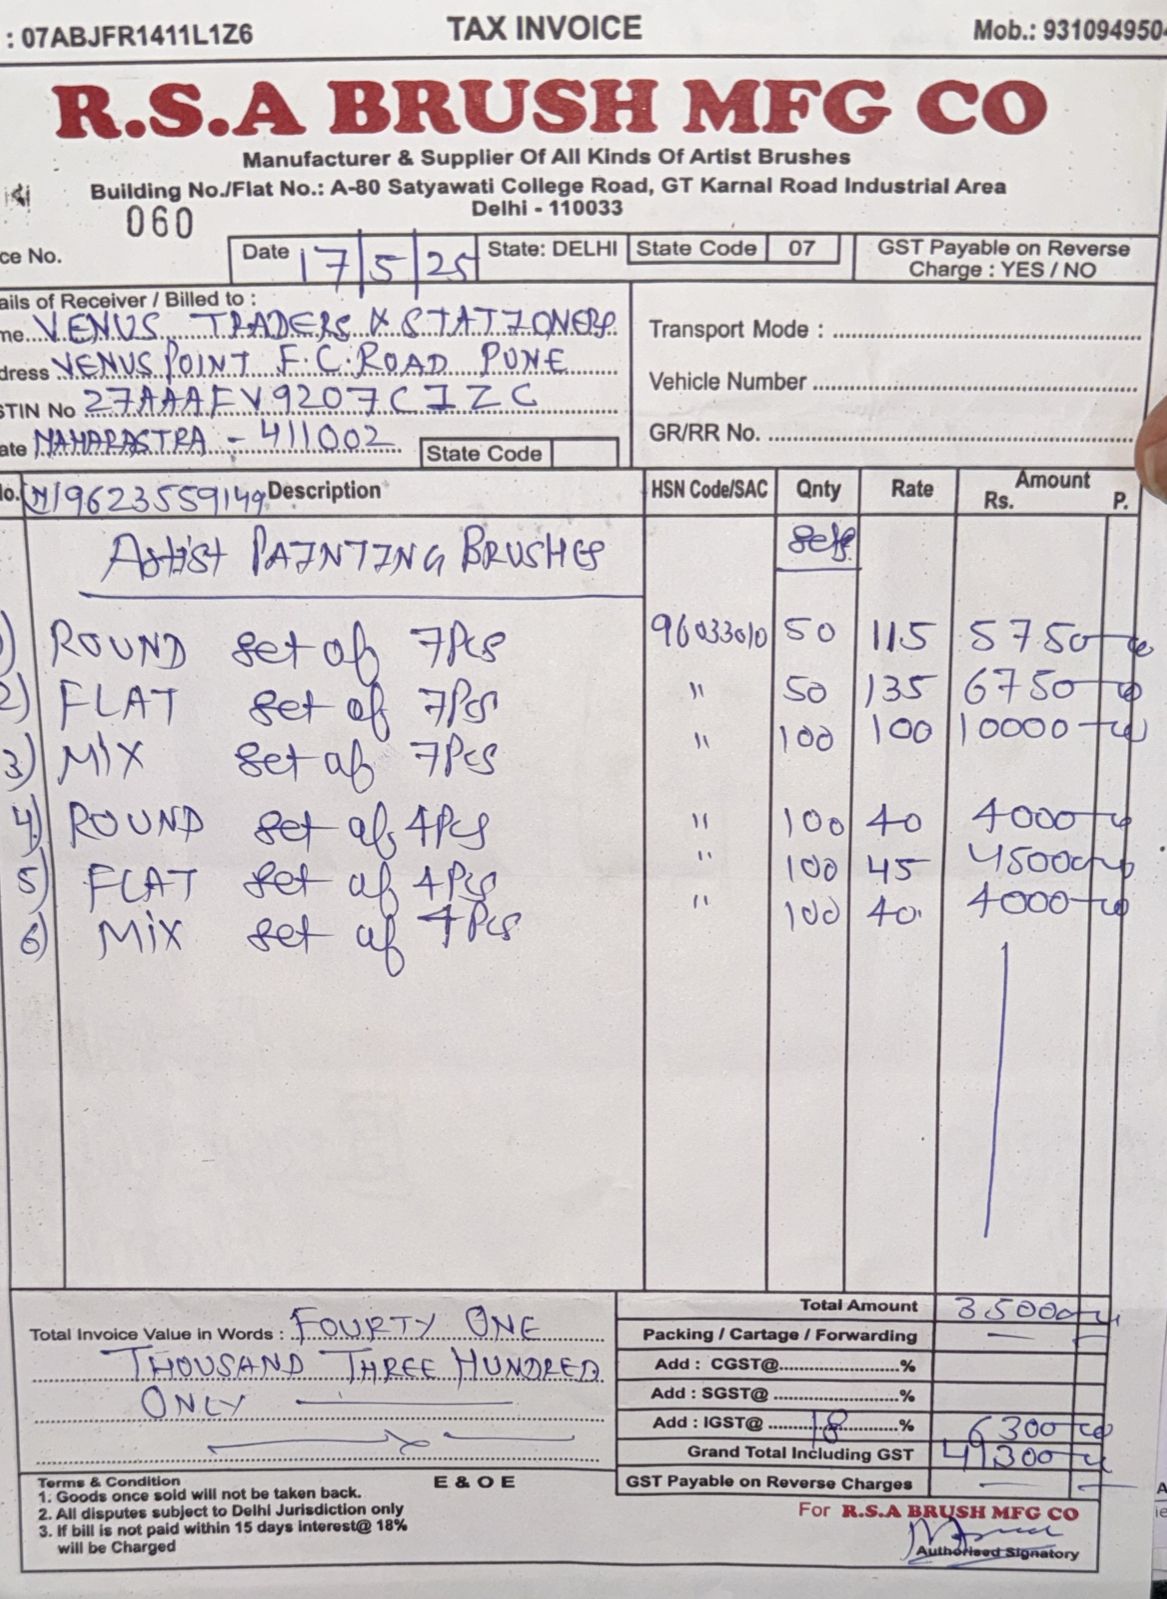 : 07ABJFR1411L1Z6 TAX INVOICE Mob.: 931094950
R.S.A BRUSH MFG CO
Manufacturer & Supplier Of All Kinds Of Artist Brushes
Building No./Flat No.: A-80 Satyawati College Road, GT Karnal Road Industrial Area
Delhi - 110033
060
ce No. Date 17/5/25 State: DELHI State Code 07 GST Payable on Reverse
Charge : YES / NO
ails of Receiver / Billed to :
me VENUS TRADERS & STATIONERS
dress VENUS POINT F.C. ROAD PUNE
STIN No 27AAAFV9207C1ZC
ate MAHARASTRA - 411002 State Code
Transport Mode :
Vehicle Number
GR/RR No.
lo. M 9623559149 Description HSN Code/SAC Qnty Rate Amount
Rs. P.
Artist PAINTING BRUSHES Sets
1) ROUND set of 7Pcs 96033010 50 115 5750
2) FLAT set of 7Pcs " 50 135 6750
3) MIX set of 7Pcs " 100 100 10000
4) ROUND set of 4Pcs " 100 40 4000
5) FLAT set of 4Pcs " 100 45 4500
6) MIX set of 4Pcs " 100 40 4000
Total Invoice Value in Words : FOURTY ONE
THOUSAND THREE HUNDRED
ONLY
Total Amount 35000
Packing / Cartage / Forwarding
Add : CGST@ %
Add : SGST@ %
Add : IGST@ 18 % 6300
Grand Total Including GST 41300
GST Payable on Reverse Charges
Terms & Condition E & O E
1. Goods once sold will not be taken back.
2. All disputes subject to Delhi Jurisdiction only
3. If bill is not paid within 15 days interest@ 18%
will be Charged
For R.S.A BRUSH MFG CO
Authorised Signatory